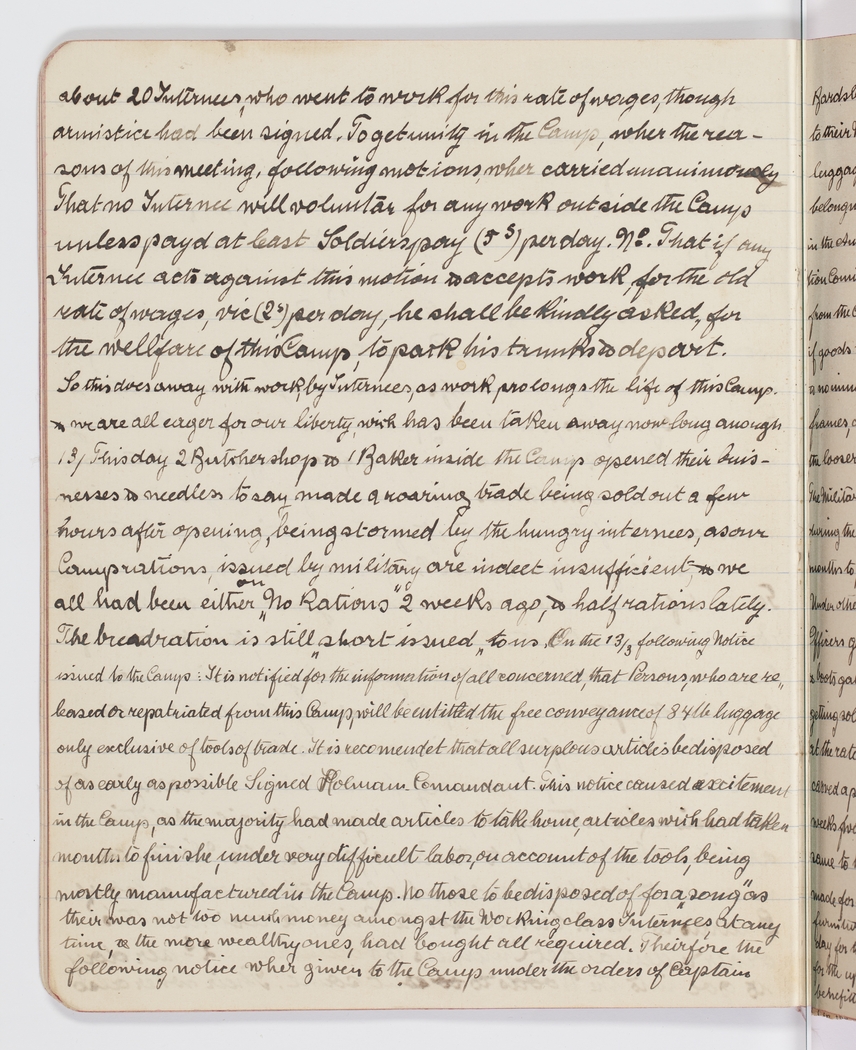 about 20 Internees, who went to work for this rate of wages, though
armistice had been signed. To get unity in the Camp, wher the rea-
sons of this meeting, following motions, wher carried unanimously
That no Internee will voluntár for any work outside the Camp
unless payd at least Soldiers pay (5 s) per day. No. That if any
Internee acts against this motion & accepts work, for the old
rate of wages, vic (2s) per day, he shall be kindly asked, for
the wellfare of this Camp, to pack his trunks & depart.
So this does away with work, by Internees, as work prolongs the life of this Camp.
& we are all eager for our liberty, wich has been taken away now long anough
13/ This day 2 Butchershop & 1 Baker inside the Camp opened their buis-
nesses & needless to say made a roaring trade being sold out a few
hours after opening, being stormed by the hungry internees, as our
Camprations, issued by military are indeet insufficient, & we
all had been either on „No Rations" 2 weeks ago, & half rations lately.
The breadration is still „short issued„ to us. On the 13/3 following Notice
issued to the Camp: It is notified for the information of all concerned, that Persons, who are re„
leased or repatriated from this Camp, will be entitled the free conveyance of 84 lb luggage
only exclusive of tools of trade. It is recomendet that all surplous articles be disposed
of as early as possible Signed Holmam Comandant. This notice caused excitement
in the Camp, as the majority had made articles to take home, articles wich had taken
months to finishe, under very difficult labor, on account of the tools, being
mostly manufactured in the Camp. No those to be disposed of „for a song" as
their was not too much money amongst the working class Internees at any
time, & the more wealthy ones, had bought all required. Theirfore the
following notice wher given to the Camp under the orders of Captain